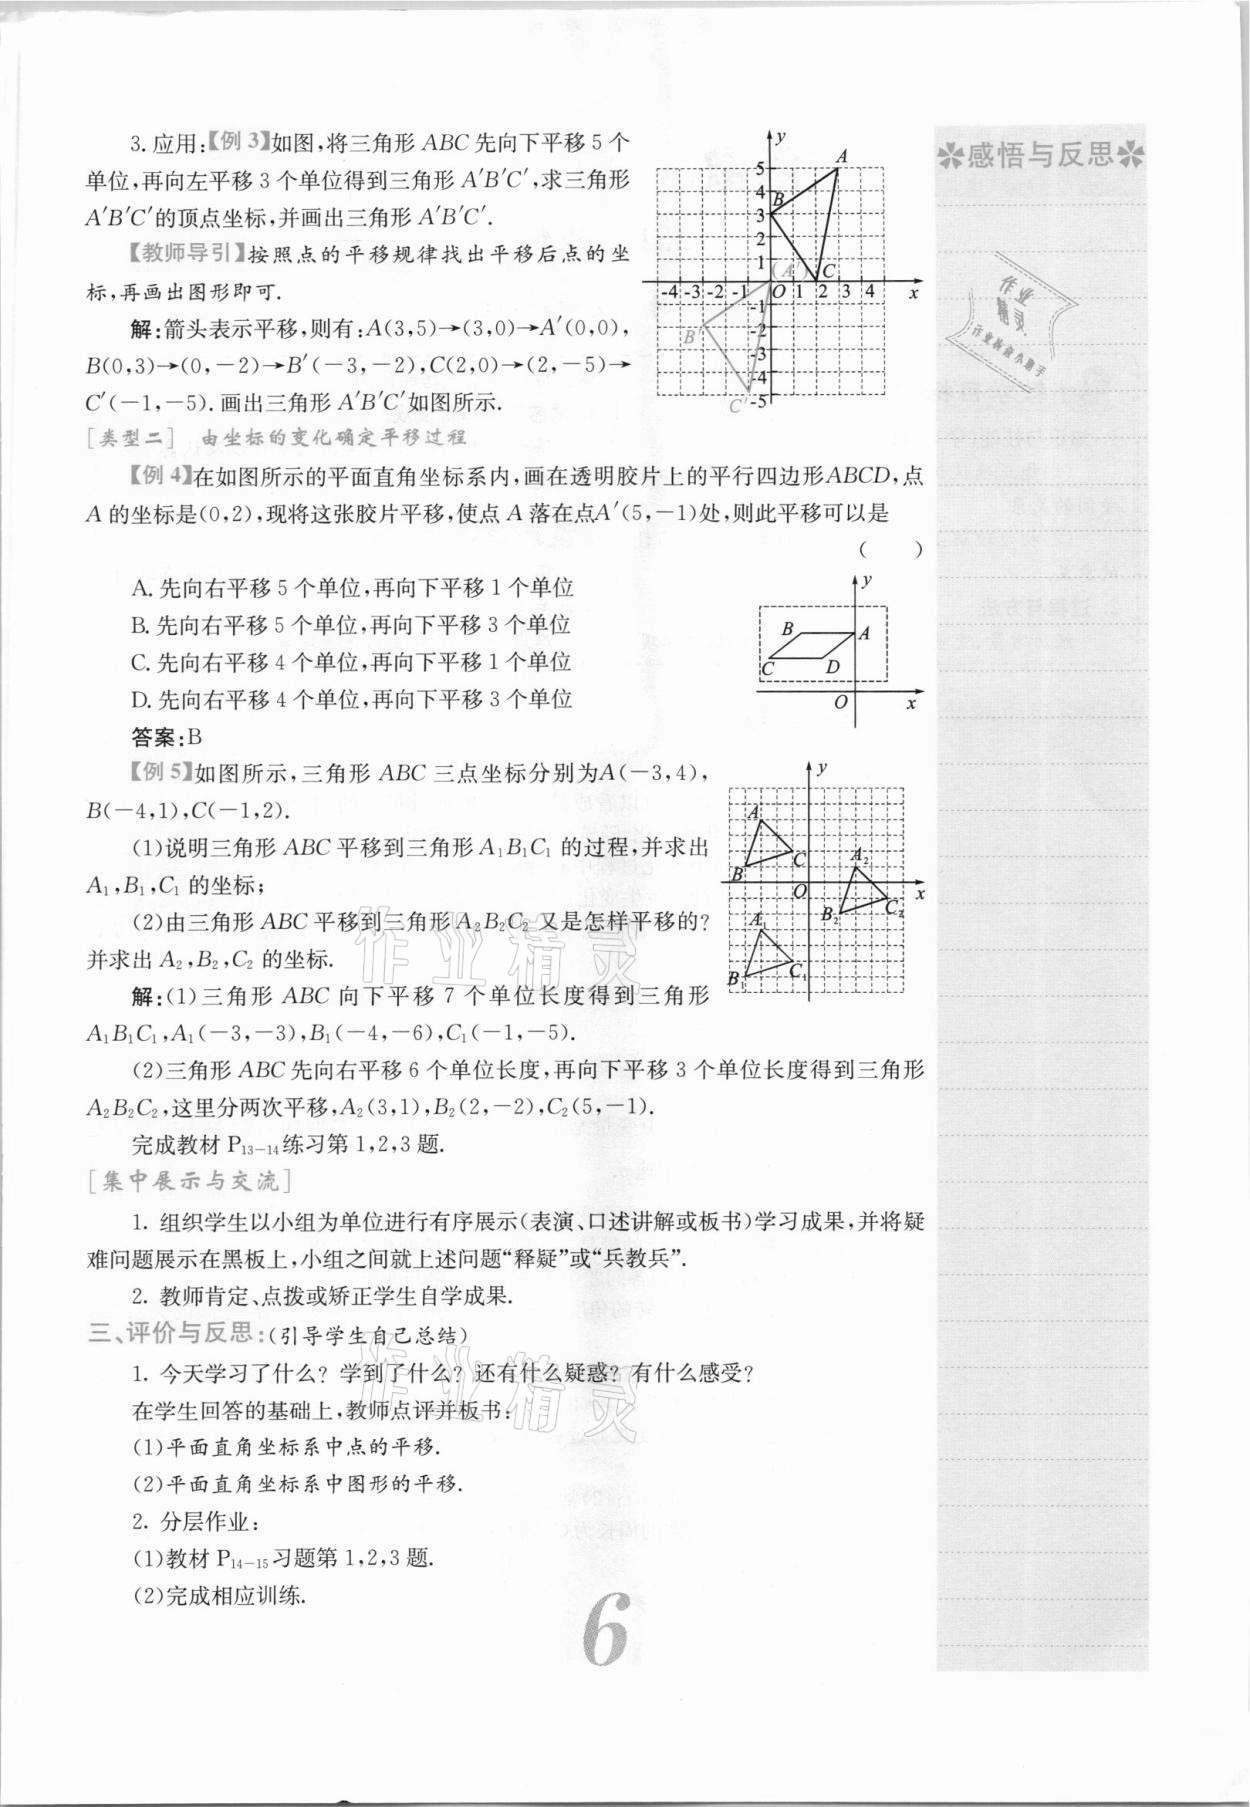 3.应用:【例 3】如图,将三角形 ABC 先向下平移 5 个
单位,再向左平移 3 个单位得到三角形 A′B′C′,求三角形
A′B′C′的顶点坐标,并画出三角形 A′B′C′.
【教师导引】按照点的平移规律找出平移后点的坐
标,再画出图形即可.
解:箭头表示平移,则有:A(3,5)→(3,0)→A′(0,0),
B(0,3)→(0,-2)→B′(-3,-2),C(2,0)→(2,-5)→
C′(-1,-5).画出三角形 A′B′C′如图所示.
y
A
5
4
B
3
2
1
(A′)
C
-4 -3 -2 -1 O 1 2 3 4 x
-1
-2
B′
-3
-4
C′ -5
[类型二] 由坐标的变化确定平移过程
【例 4】在如图所示的平面直角坐标系内,画在透明胶片上的平行四边形ABCD,点
A 的坐标是(0,2),现将这张胶片平移,使点 A 落在点A′(5,-1)处,则此平移可以是
( )
A. 先向右平移 5 个单位,再向下平移 1 个单位
B. 先向右平移 5 个单位,再向下平移 3 个单位
C. 先向右平移 4 个单位,再向下平移 1 个单位
D. 先向右平移 4 个单位,再向下平移 3 个单位
y
B A
C D
O x
答案:B
【例 5】如图所示,三角形 ABC 三点坐标分别为A(-3,4),
B(-4,1),C(-1,2).
(1)说明三角形 ABC 平移到三角形 A₁B₁C₁ 的过程,并求出
A₁,B₁,C₁ 的坐标;
(2)由三角形 ABC 平移到三角形 A₂B₂C₂ 又是怎样平移的?
并求出 A₂,B₂,C₂ 的坐标.
y
A
C
A₂
B
O x
B₂ C₂
A₁
B₁ C₁
解:(1)三角形 ABC 向下平移 7 个单位长度得到三角形
A₁B₁C₁,A₁(-3,-3),B₁(-4,-6),C₁(-1,-5).
(2)三角形 ABC 先向右平移 6 个单位长度,再向下平移 3 个单位长度得到三角形
A₂B₂C₂,这里分两次平移,A₂(3,1),B₂(2,-2),C₂(5,-1).
完成教材 P₁₃₋₁₄练习第 1,2,3 题.
[集中展示与交流]
1. 组织学生以小组为单位进行有序展示(表演、口述讲解或板书)学习成果,并将疑
难问题展示在黑板上,小组之间就上述问题“释疑”或“兵教兵”.
2. 教师肯定、点拨或矫正学生自学成果.
三、评价与反思:(引导学生自己总结)
1. 今天学习了什么? 学到了什么? 还有什么疑惑? 有什么感受?
在学生回答的基础上,教师点评并板书:
(1)平面直角坐标系中点的平移.
(2)平面直角坐标系中图形的平移.
2. 分层作业:
(1)教材 P₁₄₋₁₅习题第 1,2,3 题.
(2)完成相应训练.
6
感悟与反思
作业
精灵
作业检查小助手
作业精灵
作业精灵